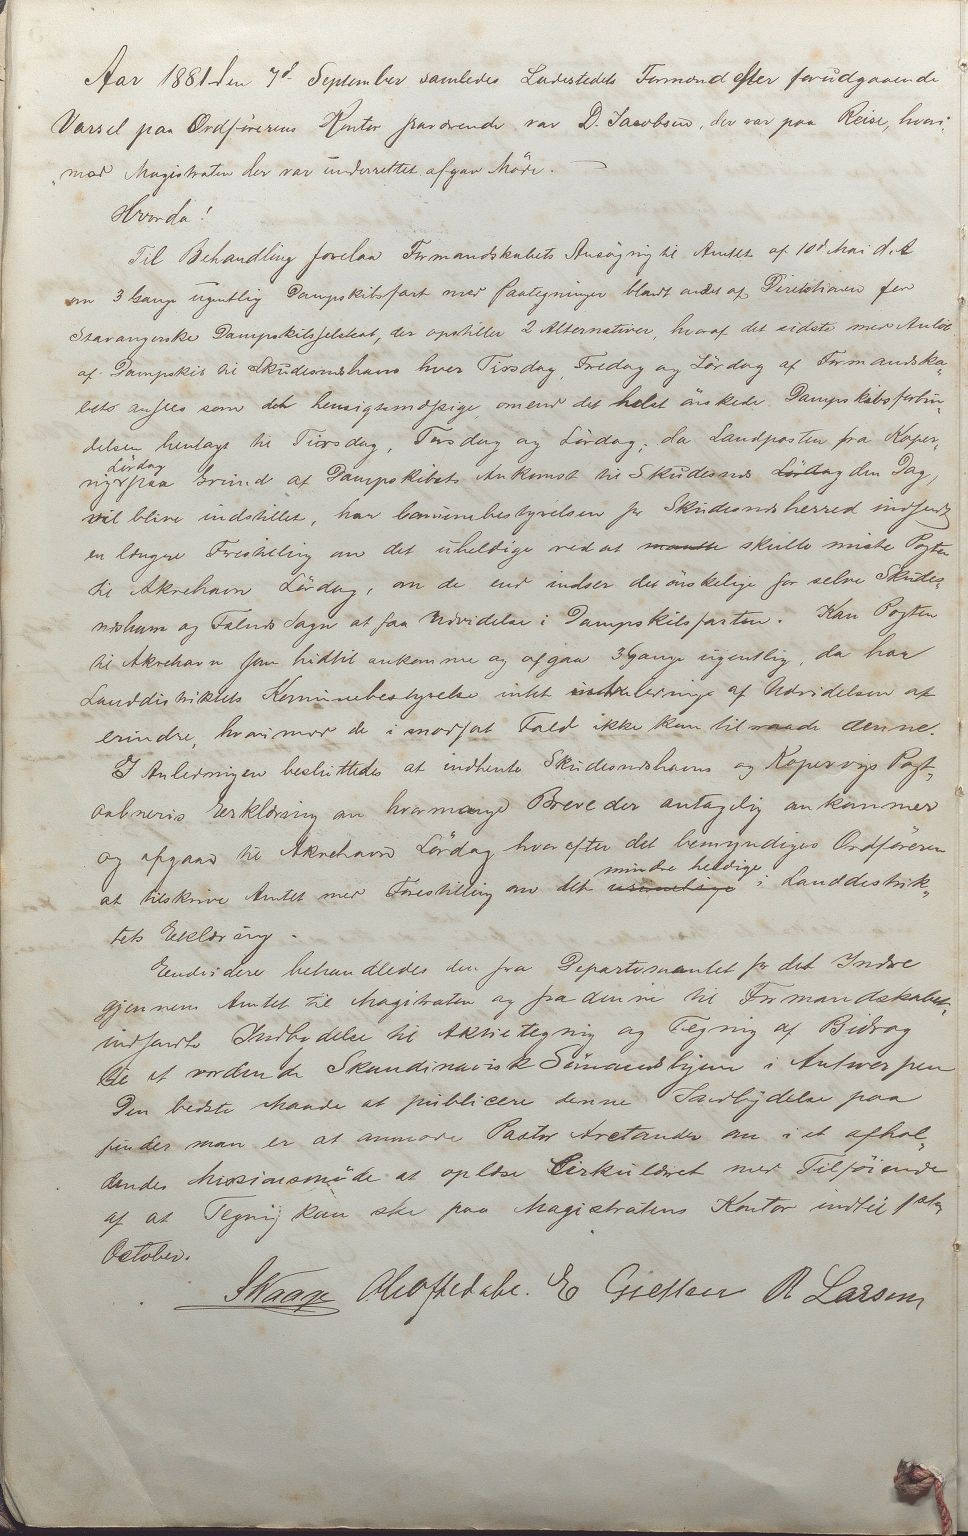 Aar 1881 den 7d September samledes Ladestedets Formænd efter forudgaaende
Varsel paa Ordførerens Kontor fraværende var D. Jacobsen, der var paa Reise, hvori-
"mod Magistraten der var underrettet afgav Møde. —
Hvorda!
Til Behandling forelaa Formandskabets Ansøgnig til Amtet af 10d Mai d. A
om 3 Gange ugentlig Dampskibsfart med Paategninger blandt andet af Direktionen for
Stavangerske Dampskibsselskab, der opstiller 2 Alternativer, hvoraf det sidste med Anløb
af Dampskib til Skudesneshavn hver Tirsdag, Fredag og Lørdag af Formandska-
bets ansees som det hensigtsmæssige, omend det helst ønskede Dampskibsforbin-
delsen henlagt til Tirsdag, Torsdag og Lørdag; da Landposten fra Koper-
Lørdag
vig paa Grund af Dampskibets Ankomst til Skudesnes Lørdag den Dag,
vil blive indstillet, har Communebestyrelsen for Skudesnesherred indsendt
en længere Forestilling om det uheldige ved at maatte skulle miste Posten
til Akrehavn Lørdag, om de end indser det ønskelige for selve Skudes-
neshavn og Falnes Sogn at faa Udvidelse i Dampskibsfarten. Kan Posten
til Akrehavn som hidtil ankomme og afgaa 3 Gange ugentlig, da har
Landdistriktets Kommunebestyrelse intet imod af Udvidelsen at
erindre, hvorimod de i modsat Fald ikke kan tilraade denne.
I Anledningen besluttedes at indhente Skudesneshavns og Kopervigs Post-
aabneris Erklæring om hvormange Breve der antagelig ankommer
og afgaar til Akrehavn Lørdag hvorefter det bemyndiges Ordføreren
mindre heldige
at tilskrive Amtet med Forestilling om det i Landdistrik-
tets Erklæring.
Endvidere behandledes den fra Departementet for det Indre
gjennem Amtet til Magistraten og fra denne til Formandskabet
indsendte Indbydelse til Aktietegnig og Tegnig af Bidrag
til et vordende Skandinavisk Sømandshjem i Antwerpen
Den bedste Maade at publicere denne Indbydelse paa
findes man er at anmode Pastor Arctander om i et afhol-
dendes Missionsmøde at oplæse Cirkulæret med Tilføiende
af at Tegnig kan ske paa Magistratens Kontor indtil første
October.
S Waage O Hoftedahl. E Gjessen R Larsen